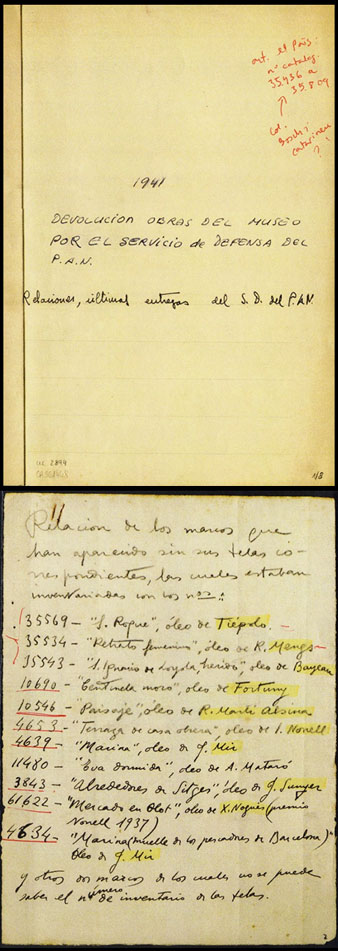 art. el País:
nº catalog.
35.436 a
35.809
col.
Bosch i
Catarineu
?
1941
DEVOLUCION OBRAS DEL MUSEO
POR EL SERVICIO de DEFENSA DEL
P.A.N.
Relaciones, últimas entregas del S. D. del P.A.N.
1/3
Relación de los marcos que
han aparecido sin sus telas co-
rrespondientes, las cuales estaban
inventariadas con los nos:
35569 - "S. Roque", óleo de Tiépolo. -
35534 - "Retrato femenino", óleo de R. Mengs -
35543 - "S. Ignacio de Loyola herido", óleo de Bayeu
10690 - "Centinela moro", óleo de Fortuny
10546 - "Paisaje", óleo de R. Martí Alsina
4653 - "Terraza de casa obrera", óleo de I. Nonell
4639 - "Marina", óleo de J. Mir
11480 - "Eva dormida", óleo de A. Mataró
3843 - "Alrededores de Sitges", óleo de J. Sunyer
61622 - "Mercado en Olot", óleo de X. Nogués (premio
Nonell 1937)
4634 - "Marina (muelle de los pescadores de Barcelona)"
Oleo de J. Mir
y otros dos marcos de los cuales no se puede
saber el número de inventario de las telas.
2